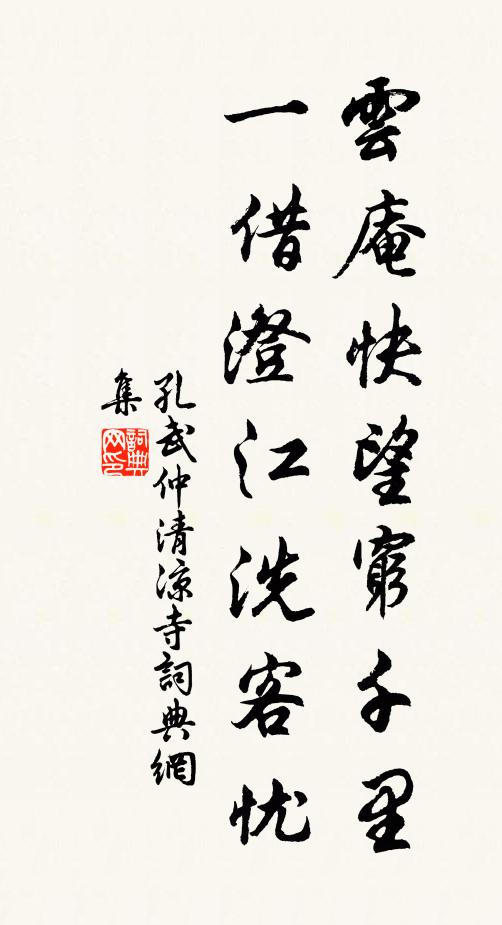 雲庵快望窮千里
一借澄江洗客忧
孔武仲清凉寺詞典網
集
詞典网印